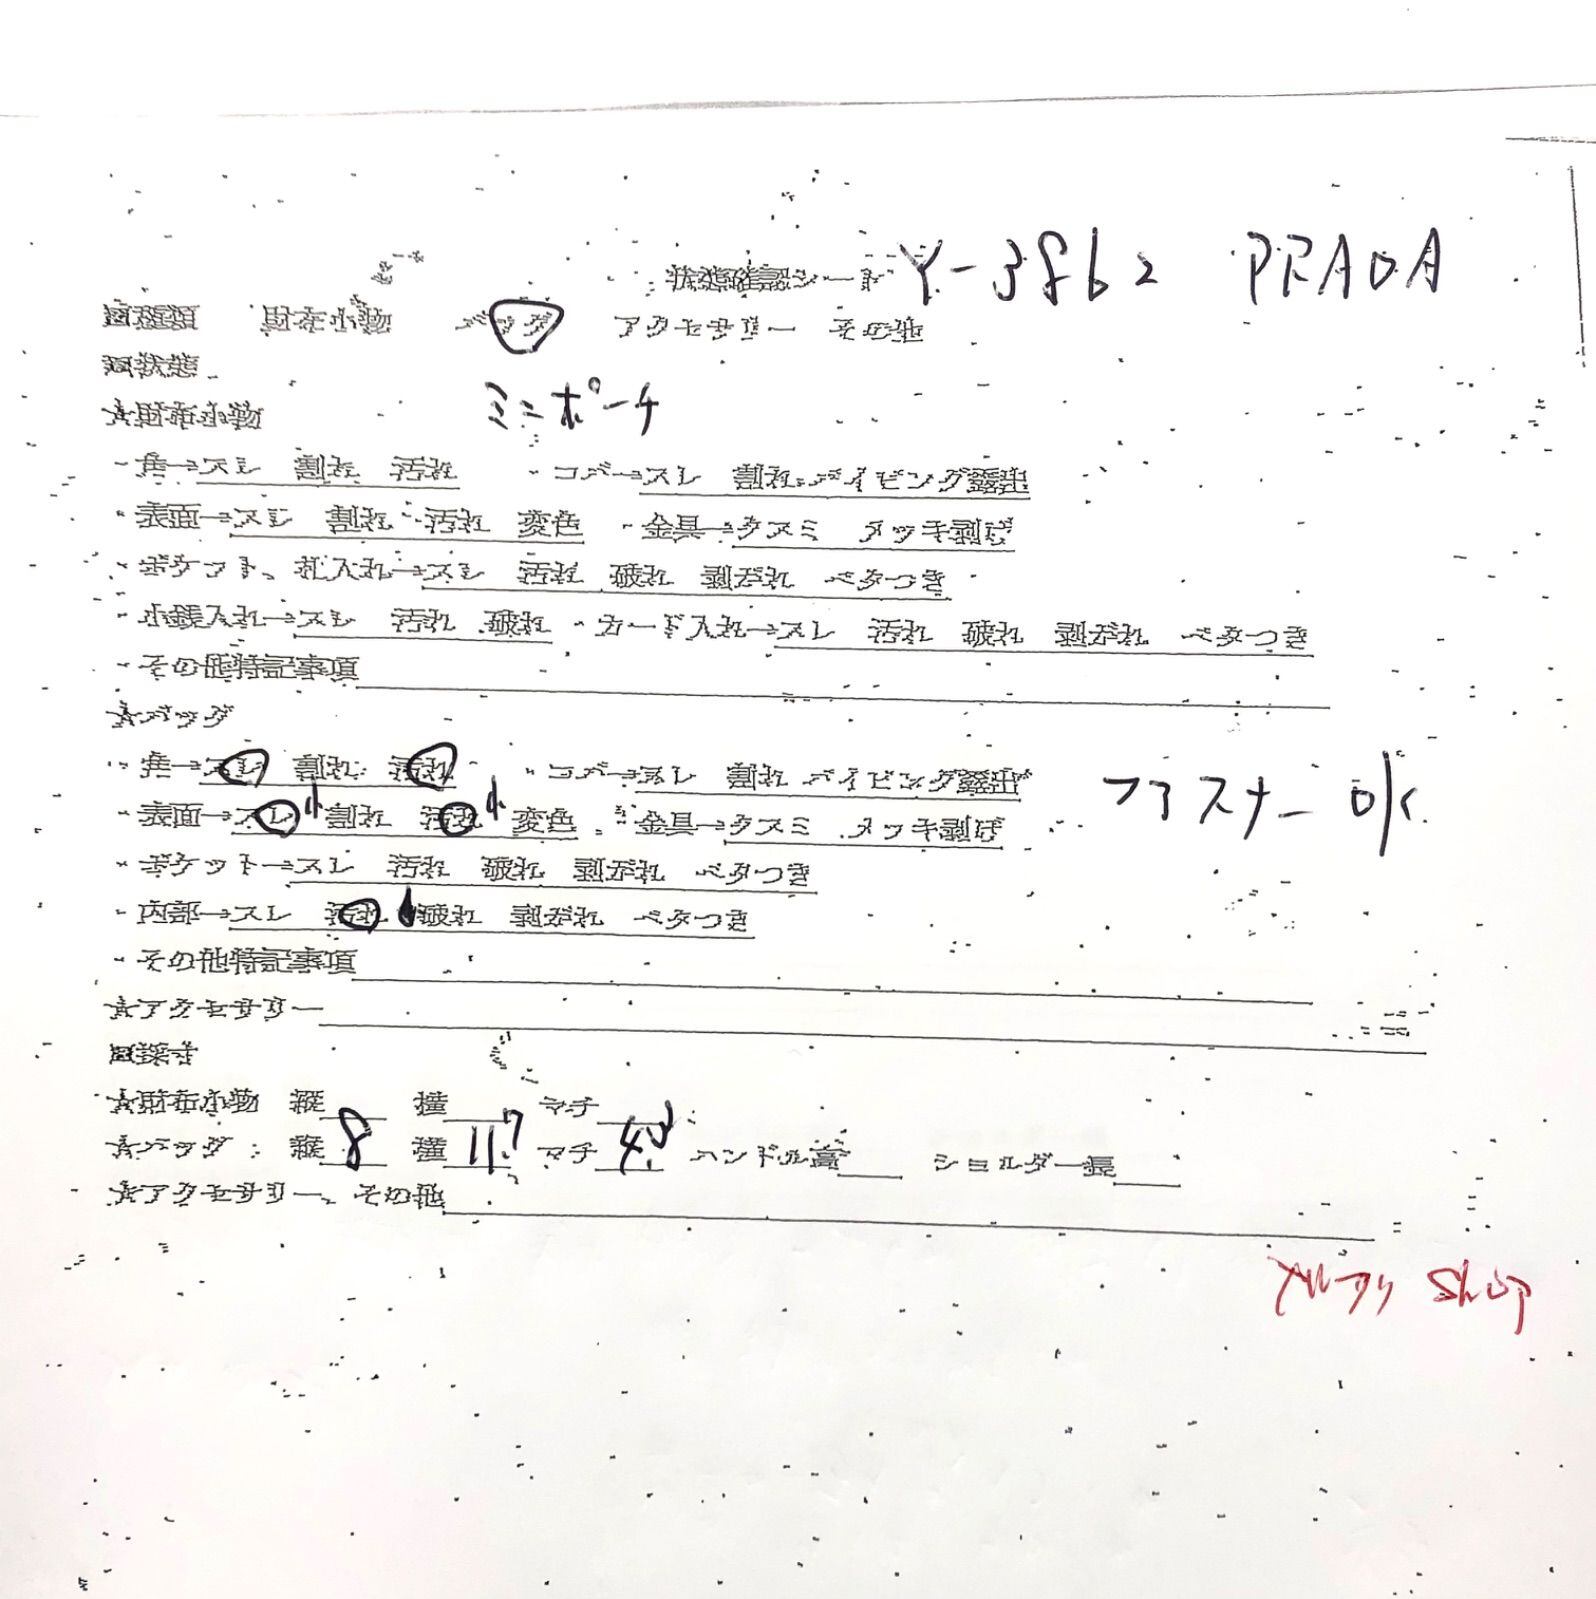 状態確認シート Y-3862 PRADA
□種類 財布小物 バッグ アクセサリー その他
□状態
ミニポーチ
☆財布小物
・角→スレ 割れ 汚れ ・コバ→スレ 割れ パイピング露出
・表面→スレ 割れ 汚れ 変色 ・金具→クスミ メッキ剥げ
・ポケット、札入れ→スレ 汚れ 破れ 剥がれ ベタつき
・小銭入れ→スレ 汚れ 破れ ・カード入れ→スレ 汚れ 破れ 剥がれ ベタつき
・その他特記事項
☆バッグ
・角→スレ 割れ 汚れ ・コバ→スレ 割れ パイピング露出 ファスナー OK
・表面→スレ 小 割れ 汚れ 小 変色 ・金具→クスミ メッキ剥げ
・ポケット→スレ 汚れ 破れ 剥がれ ベタつき
・内部→スレ 汚れ 破れ 剥がれ ベタつき
・その他特記事項
☆アクセサリー
□採寸
☆財布小物 縦 横 マチ
☆バッグ:縦 8 横 11.7 マチ ハンドル高 ショルダー長
☆アクセサリー、その他
メルカリ Shop